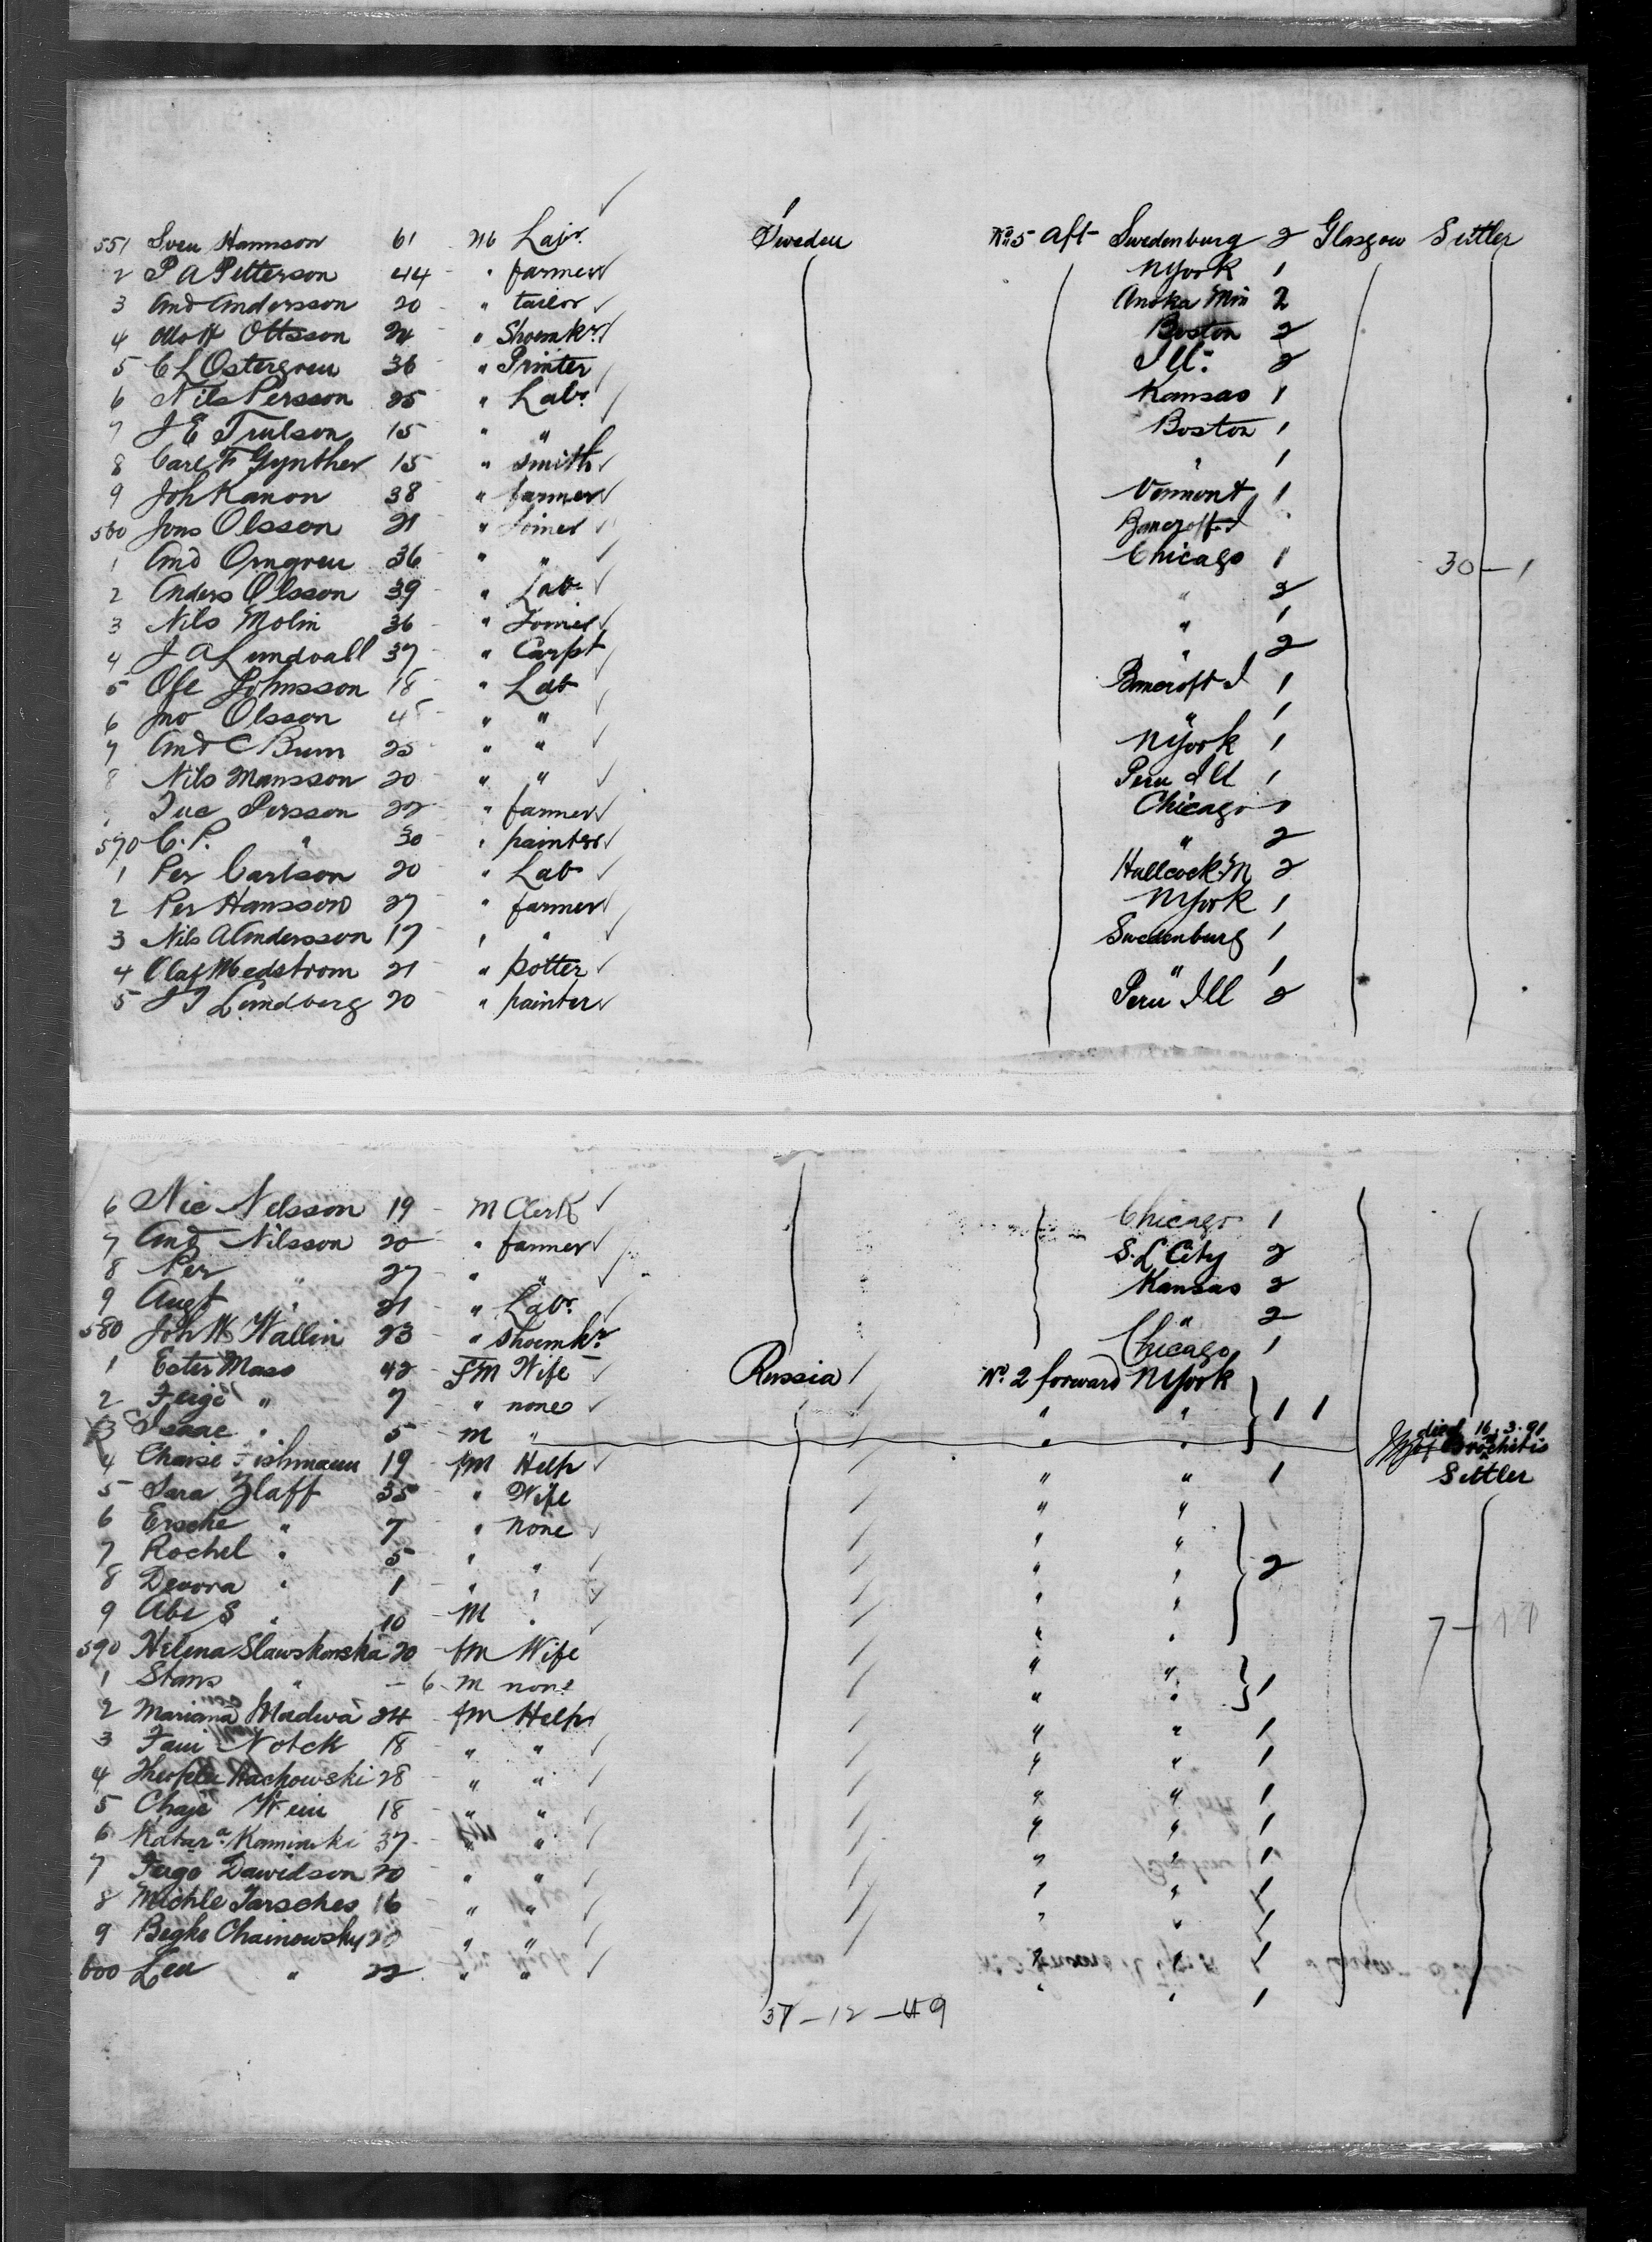 551 Sven Hannson 61 M Labr. Sweden No. 5 aft Swedenburg 2 Glasgow Settler
2 P A Petterson 44 " farmer NYork 1
3 And Andersson 20 " tailor Anoka Min 2
4 Otto H Ottsson 24 " Shoemkr. Boston 2
5 C L Ostergren 36 " Printer Ill. 2
6 Nils Persson 25 " Labr. Kansas 1
7 J E Trulson 15 " " Boston 1
8 Carl F Gynther 15 " Smith " 1
9 Joh Kanon 38 " farmer Vermont 1
560 Jons Olsson 21 " Joiner Bancroft I
1 And Orngren 36 " " Chicago 1 30-1
2 Anders Olsson 39 " Lab " 2
3 Nils Molin 36 " Joiner " 1
4 J A Lundvall 37 " Carpt " 2
5 Ole Johnsson 18 " Lab Bancroft I 1
6 Jno Olsson 45 " " " 1
7 And C Brun 25 " " NYork 1
8 Nils Mansson 20 " " Peru Ill 1
Persson 22 " farmer Chicago 1
570 C. P. " 30 " painter " 2
1 Per Carlson 20 " Lab Hallcock M 2
2 Per Hansson 27 " farmer NYork 1
3 Nils A Andersson 17 " " Swedenburg 1
4 Olaf Wedstrom 21 " potter " 1
5 J J Lundberg 20 " painter Peru Ill 2
6 Nic Nelsson 19 M Clerk Chicago 1
7 And Nilsson 20 " farmer S. L City 2
8 Per " 27 " " Kansas 2
9 Augt " 21 " Labr. " 2
580 Joh W Wallin 23 " Shoemkr. Chicago 1
1 Ester Maso 42 FM Wife Russia No. 2 forward NYork
2 Feige " 7 " none " " 1 1
3 Isaac " 5 M " " " died 16.3.91 Brochitis
4 Chaise Fishmann 19 fM Help " " 1 Settler
5 Sara Zlaff 35 " Wife " "
6 Ersche " 7 " none " "
7 Rochel " 5 " " " " 2
8 Devora " 1 " " " "
9 Abe S " 10 M " " " 7-
590 Helena Slawskonska 20 fM Wife " "
1 Stans " - 6 M none " " 1
2 Mariana Madwa 24 fM Help " " 1
3 Notch 18 " " " " 1
4 28 " " " " 1
5 Chaje Wein 18 " " " " 1
6 Katara. Kaminski 37 " " " " 1
7 Feige Davidson 20 " " " " 1
8 Michle Tarsches 16 " " " " 1
9 Begke Chainowsky 20 " " " " 1
600 Lea " 22 " " " " 1
37-12-49